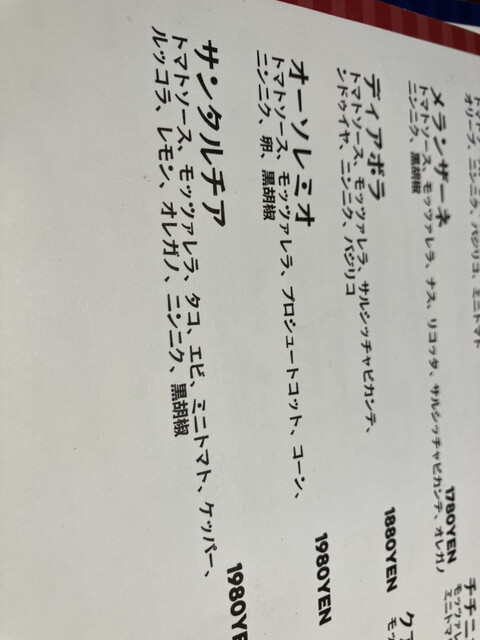 オリーブ、ニンニク、バジリコ、ミニトマト
メランザーネ
トマトソース、モッツァレラ、ナス、リコッタ、サルシッチャピカンテ、オレガノ
ニンニク、黒胡椒
1780YEN
ディアボラ
トマトソース、モッツァレラ、サルシッチャピカンテ、
ンドゥイヤ、ニンニク、バジリコ
1880YEN
オーソレミオ
トマトソース、モッツァレラ、プロシュートコット、コーン、
ニンニク、卵、黒胡椒
1980YEN
サンタルチア
トマトソース、モッツァレラ、タコ、エビ、ミニトマト、ケッパー、
ルッコラ、レモン、オレガノ、ニンニク、黒胡椒
1980YE